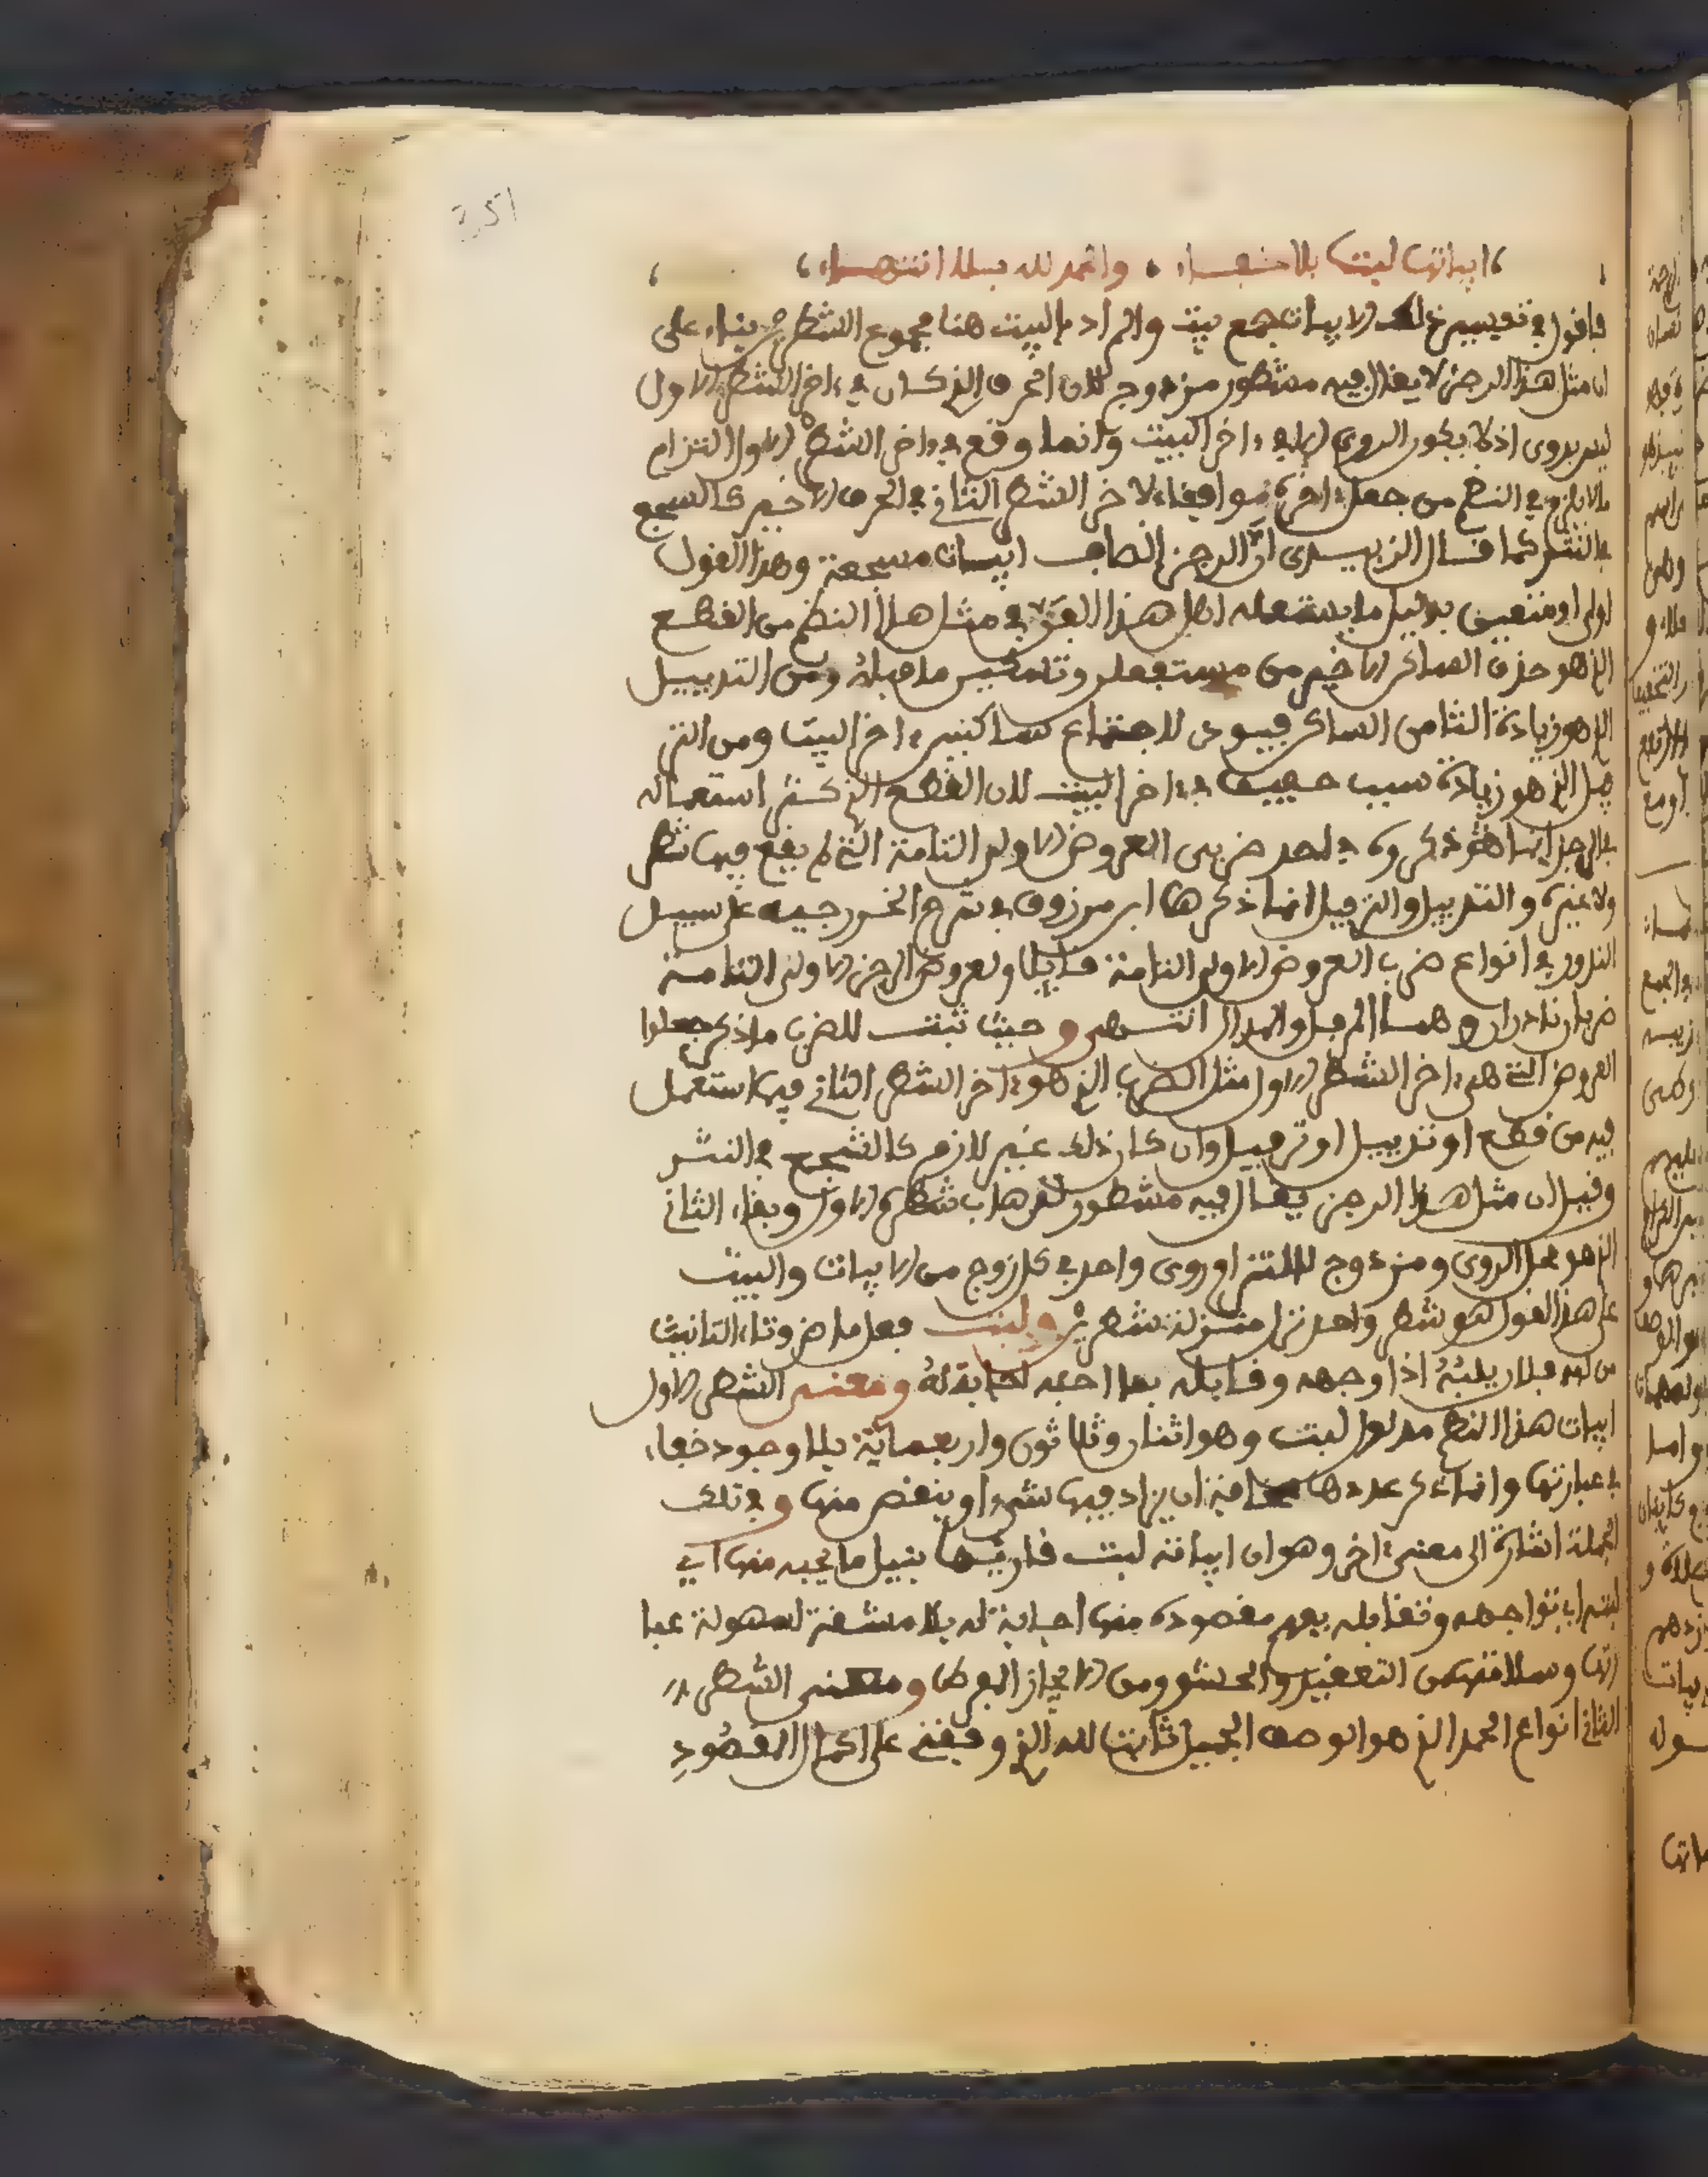 251
ابياتها لبت بلا خفاء والحمد لله بلا انتهاء
فاقول في تفسير ذلك الابيات جمع بيت والمراد بالبيت هنا مجموع الشطرين بناء على
ان مثل هذا الرجز لا يقال فيه مشطور مزدوج لان الحرف الذي كان في اخر الشطر الاول
ليس بروي اذ لا يكون الروي الا في اخر البيت وانما وقع في اخر الشطر الاول التزام
ما لا يلزم في النظم من جعل اخره موافقا لاخر الشطر الثاني في الحرف الاخير كالسجع
في النثر كما قال الزبيدي ان الرجز ابيات مسجعة وهذا القول
اولى او متعين بدليل ما يستعمله اهل هذا الفن في مثل هذا النظم من القطع
الذي هو حذف الساكن الاخير من مستفعلن وتسكين ما قبله ومن التذييل
الذي هو زيادة الثامن الساكن فيودي لاجتماع ساكنين اخر البيت ومن التر
فيل الذي هو زيادة سبب خفيف في اخر البيت لان القطع الذي كثر استعماله
في الرجز انما ذكروه في احد ضربي العروض الاولى التامة التي لم يقع فيها شطر
ولا غيره والتذييل والترفيل انما ذكرها ابن مرزوق في شرح الخزرجية على سبيل
الندور في انواع ضرب العروض الاولى التامة قائلا ولعروض الرجز الاولى التامة
ضربان نادران وهما المرفل والمذال انتهى وحيث ثبت للضرب ما ذكر جعلوا
العروض التي هي اخر الشطر الاول مثل الضرب الذي هو اخر الشطر الثاني فيما استعمل
فيه من قطع او تذييل او ترفيل وان كان ذلك غير لازم كالتسجيع في النثر
وقيل ان مثل هذا الرجز يقال فيه مشطور لذهاب شطره الاول وبقاء الثاني
الذي هو محل الروي ومزدوج لالتزام روي واحد في كل زوج من الابيات والبيت
على هذا القول هو شطر واحد نزل منزلة شطرين ولبت فعل ماض وتاء التانيث
من لبه فلان يلبه اذا وجهه وقابله بما احبه ومعنى الشطر الاول
ابيات هذا النظم مدلول لبت وهو اثنان وثلاثون واربعماية بلا وجود خفاء
في عبارتها وانما ذكر عددها مخافة ان يزاد فيها شيء او ينقص منها وفي تلك
الجملة اشارة الى معنى اخر وهو ان ابياته لبت قارئها بنيل ما يحبه منها اي
لبته اي تواجهه وتقابله بفهم مقصوده منها اجابة له بلا مشقة لسهولة عبا
رتها وسلامتها من التعقيد والحشو ومن الايجاز المفرط ومعنى الشطر
الثاني انواع الحمد الذي هو الوصف الجميل ثابت لله الذي وفقني على اكمال المقصود